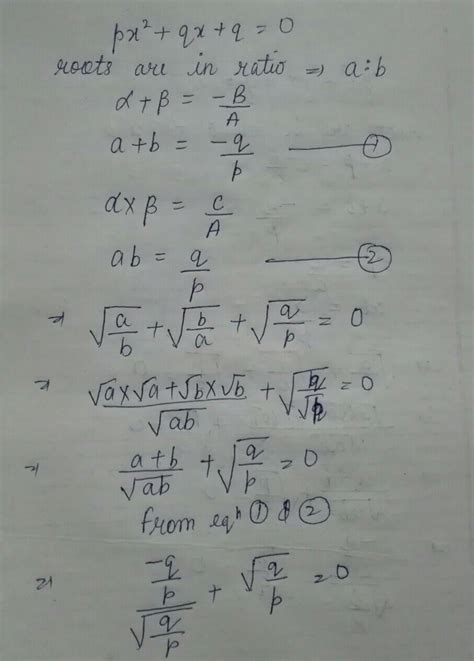 px² + qx + q = 0
roots are in ratio ⇒ a:b
α + β = -B/A
a + b = -q/p ——— ①
α x β = c/A
ab = q/p ——— ②
⇒ √(a/b) + √(b/a) + √(q/p) = 0
⇒ (√a x √a + √b x √b)/√(ab) + √(q/p) = 0
⇒ (a + b)/√(ab) + √(q/p) = 0
from eqⁿ ① & ②
⇒ (-q/p)/√(q/p) + √(q/p) = 0